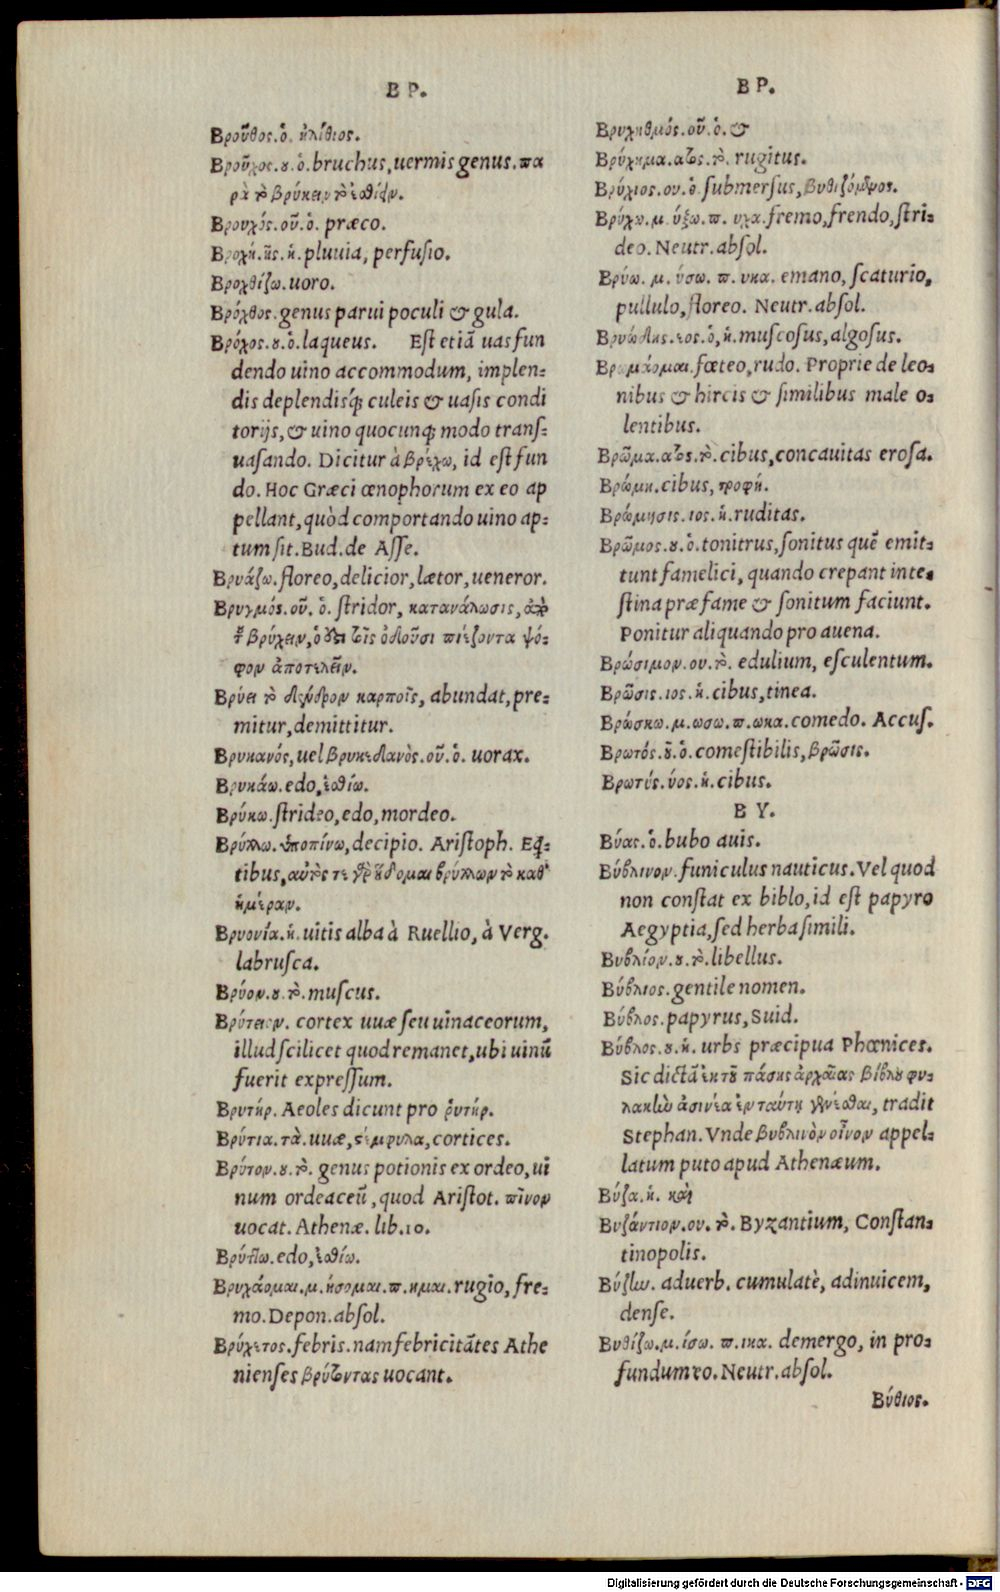 ΒΡ.
Βροῦθος.ὁ. ἠλίθιος.
Βροῦχος.ȣ.ὁ.bruchus,uermis genus.πα
ρὰ τὸ βρύκειν τὸ ἐσθίειν.
Βρουχός.οῦ.ὁ. præco.
Βροχή.ῆς.ἡ.pluuia, perfusio.
Βροχθίζω.uoro.
Βρόχθος.genus parui poculi & gula.
Βρόχος.ȣ.ὁ.laqueus. Est etiã uas fun
dendo uino accommodum, implen-
dis deplendisq́; culeis & uasis condi
torijs,& uino quocunq; modo trans-
uasando. Dicitur à βρέχω, id est fun
do. Hoc Græci œnophorum ex eo ap
pellant,quòd comportando uino ap-
tum sit.Bud.de Asse.
Βρυάζω.floreo,delicior,lætor,ueneror.
Βρυγμός.οῦ. ὁ. stridor, κατανάλωσις, ἀπὸ
τ͂ βρύχειν,ὅ ὅτι τοῖς ὀδοῦσι πιέζοντα ψό-
φον ἀποτελεῖν.
Βρύει τὸ δένδρον καρποῖς, abundat,pre-
mitur,demittitur.
Βρυκανός,uel βρυκεδανὸς.οῦ.ὁ. uorax.
Βρυκάω.edo,ἐσθίω.
Βρύκω.strideo,edo,mordeo.
Βρύλλω.ὑποπίνω,decipio. Aristoph. Eq̃-
tibus,αὐτός τε βρύλλων τὸ καθ'
ἡμέραν.
Βρυονία.ἡ.uitis alba à Ruellio, à Verg.
labrusca.
Βρύον.ȣ.τὸ.muscus.
Βρύτειον. cortex uuæ seu uinaceorum,
illud scilicet quod remanet,ubi uinũ
fuerit expressum.
Βρυτήρ. Aeoles dicunt pro ῥυτήρ.
Βρύτια.τὰ.uuæ,στέμφυλα,cortices.
Βρύτον.ȣ.τὸ. genus potionis ex ordeo,ui
num ordeaceũ,quod Aristot. πῖνον
uocat.Athenæ. lib.10.
Βρύττω.edo,ἐσθίω.
Βρυχάομαι.μ.ήσομαι.π.ημαι.rugio,fre-
mo.Depon.absol.
Βρύχετος.febris.nam febricitãtes Athe
nienses βρύζοντας uocant.
ΒΡ.
Βρυχηθμός.οῦ.ὁ.&
Βρύχημα.ατος.τὸ. rugitus.
Βρύχιος.ου.ὁ.submersus,βυθιζόμενος.
Βρύχω.μ.ύξω.π. υχα.fremo,frendo,stri-
deo.Neutr.absol.
Βρύω. μ. ύσω. π. υκα. emano, scaturio,
pullulo,floreo. Neutr.absol.
Βρυώδης.εος.ὁ,ἡ.muscosus,algosus.
Βρωμάομαι.fœteo,rudo. Proprie de leo-
nibus & hircis & similibus male o-
lentibus.
Βρῶμα.ατος.τὸ.cibus,concauitas erosa.
Βρώμη.cibus,τροφή.
Βρώμησις.ιος.ἡ.ruditas.
Βρῶμος.ȣ.ὁ.tonitrus,sonitus quẽ emit-
tunt famelici, quando crepant inte-
stina præ fame & sonitum faciunt.
Ponitur aliquando pro auena.
Βρώσιμον.ου.τὸ. edulium, esculentum.
Βρῶσις.ιος.ἡ.cibus,tinea.
Βρώσκω.μ.ωσω.π.ωκα.comedo. Accus.
Βρωτός.ȣ͂.ὁ.comestibilis,βρῶσις.
Βρωτύς.ύος.ἡ.cibus.
ΒΥ.
Βύας.ὁ.bubo auis.
Βύβλινον.funiculus nauticus.Vel quod
non constat ex biblo,id est papyro
Aegyptia,sed herba simili.
Βυβλίον.ȣ.τὸ.libellus.
Βύβλιος.gentile nomen.
Βύβλος.papyrus,Suid.
Βύβλος.ȣ.ἡ. urbs præcipua Phœnices.
Sic dictã ἐκ τȣ͂ πάσης ἀρχαίας βίβλȣ φυ-
λακὴν ἀσινέα ἐν ταύτῃ γενέσθαι, tradit
Stephan.Vnde βυβλινὸν οἶνον appel-
latum puto apud Athenæum.
Βύζα.ἡ. καὶ
Βυζάντιον.ου. τὸ. Byzantium, Constan-
tinopolis.
Βύζην. aduerb. cumulatè, adinuicem,
dense.
Βυθίζω.μ.ίσω. π.ικα. demergo, in pro-
fundum eo.Neutr.absol.
Βύθιος.
Digitalisierung gefördert durch die Deutsche Forschungsgemeinschaft - DFG